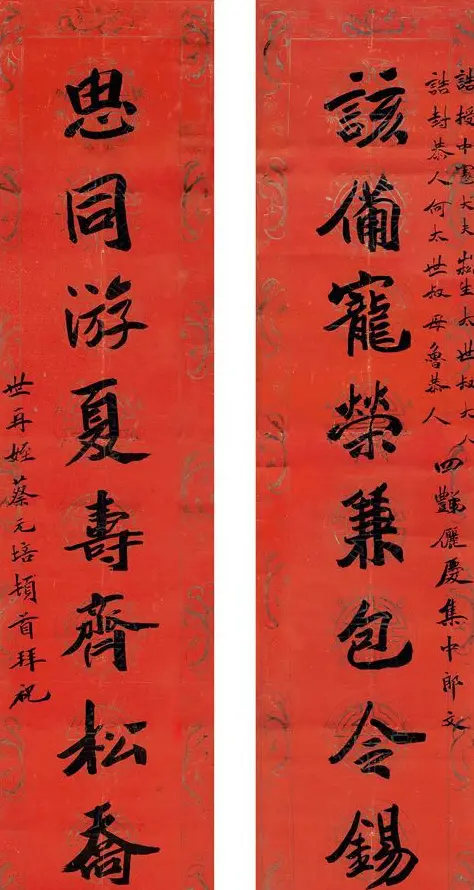 誥授中憲大夫崧生太世叔大人
誥封恭人何太世叔母魯恭人
四豔儷慶集中郎文
該備寵榮兼包令錫
思同游夏壽齊松喬
世再姪蔡元培頓首拜祝